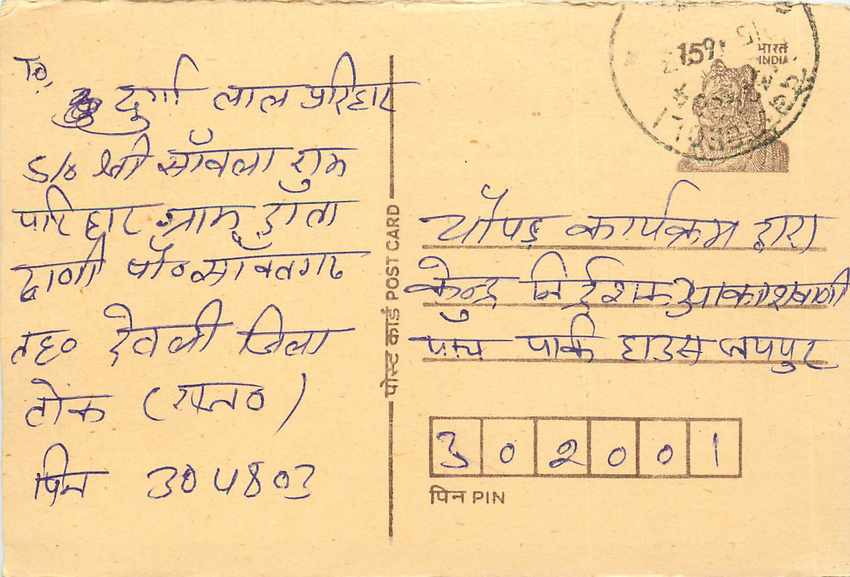 To,
दुर्गा लाल परिहार
S/o श्री साँवला राम
परिहार ग्राम
ढाणी पॉ० साँवतगढ
तह० देवली जिला
टोंक (राज०)
पिन 304803
पोस्ट कार्ड POST CARD
15
भारत
INDIA
चौपड़ कार्यक्रम द्वारा
केन्द्र निर्देशक आकाशवाणी
पार्क हाउस जयपुर
302001
पिन PIN